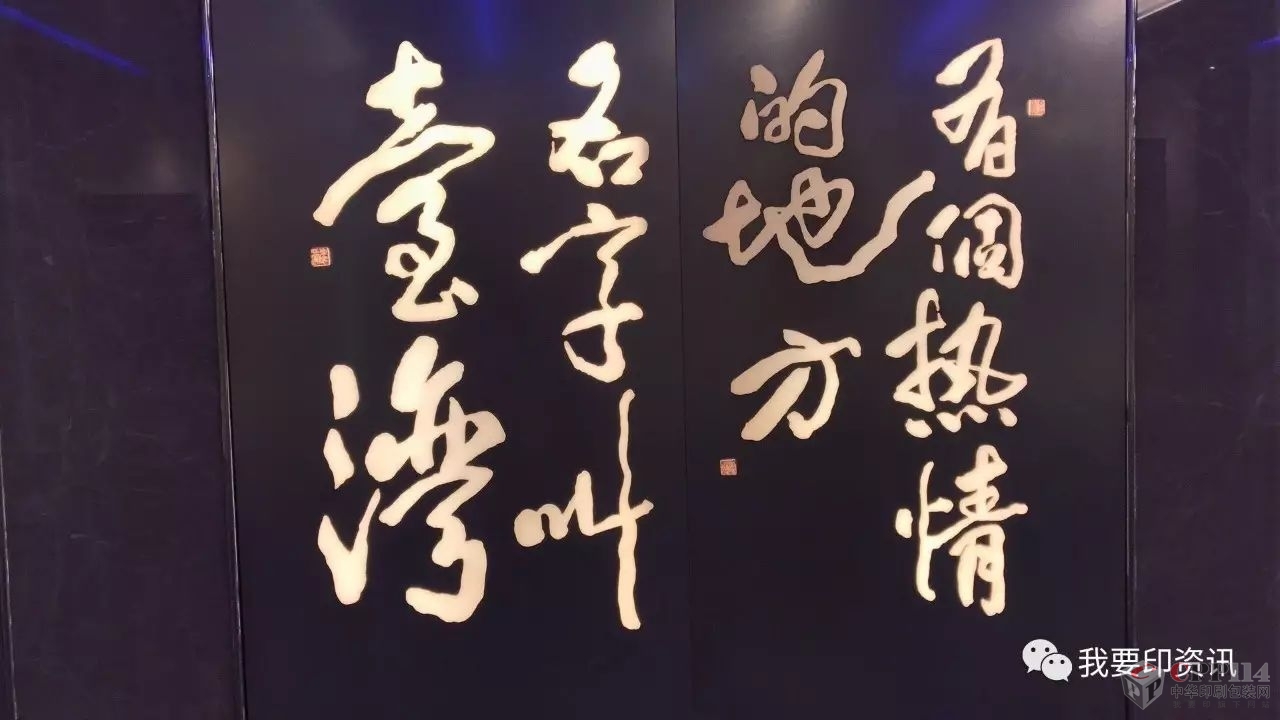 有個热情
的地方
名字叫
臺灣
我要印资讯
CPP114
中华印刷包装网